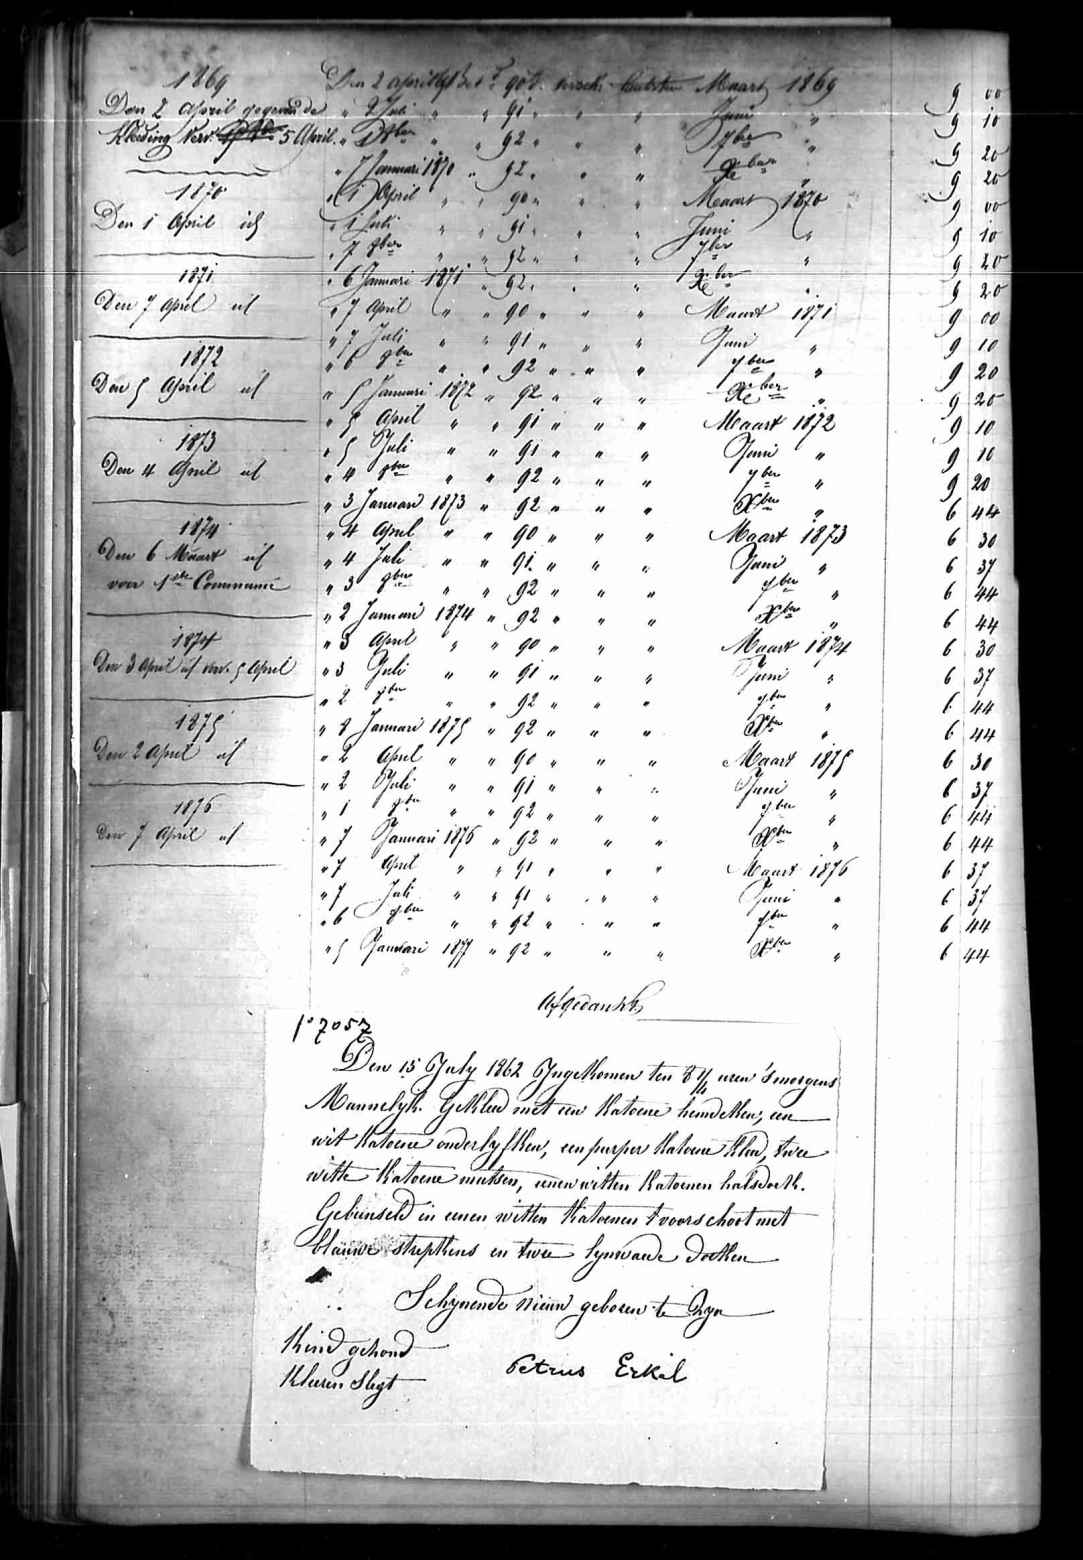 1869
Den 2 April gegeven de
Kleding verv. 5 April.
1870
Den 1 April id
1871
Den 7 April id
1872
Den 5 April id
1873
Den 4 April id
1874
Den 6 Maart id
voor 1ste Communie
1874
Den 3 April id verv. 5 April
1875
Den 2 April id
1876
Den 7 April id
Den 2 April 90 Maart 1869 9 00
" 2 Juli " " 91 " " " Juni " 9 10
" 1 8ber " " 92 " " " 7ber " 9 20
" 7 Januari 1870 " 92 " " " Xber " 9 20
" 1 April " " 90 " " " Maart 1870 9 00
" 1 Juli " " 91 " " " Juni " 9 10
" 7 8ber " " 92 " " " 7ber " 9 20
" 6 Januari 1871 " 92 " " " Xber " 9 20
" 7 April " " 90 " " " Maart 1871 9 00
" 7 Juli " " 91 " " " Juni " 9 10
" 6 8ber " " 92 " " " 7ber " 9 20
" 5 Januari 1872 " 92 " " " Xber " 9 20
" 5 April " " 91 " " " Maart 1872 9 10
" 5 Juli " " 91 " " " Juni " 9 10
" 4 8ber " " 92 " " " 7ber " 9 20
" 3 Januari 1873 " 92 " " " Xber " 6 44
" 4 April " " 90 " " " Maart 1873 6 30
" 4 Juli " " 91 " " " Juni " 6 37
" 3 8ber " " 92 " " " 7ber " 6 44
" 2 Januari 1874 " 92 " " " Xber " 6 44
" 3 April " " 90 " " " Maart 1874 6 30
" 3 Juli " " 91 " " " Juni " 6 37
" 2 8ber " " 92 " " " 7ber " 6 44
" 8 Januari 1875 " 92 " " " Xber " 6 44
" 2 April " " 90 " " " Maart 1875 6 30
" 2 Juli " " 91 " " " Juni " 6 37
" 1 8ber " " 92 " " " 7ber " 6 44
" 7 Januari 1876 " 92 " " " Xber " 6 44
" 7 April " " 91 " " " Maart 1876 6 37
" 7 Juli " " 91 " " " Juni " 6 37
" 6 8ber " " 92 " " " 7ber " 6 44
" 5 Januari 1877 " 92 " " " Xber " 6 44
Afgedankt
f° 7057
Den 15 July 1862 Ingekomen ten 8 1/4 uren 's morgens
Mannelyk. Gekleed met een Katoene hemdeken, een
wit Katoene onderlyfken, een purper Katoene Kleed, twee
witte Katoene mutsen, eenen witten Katoenen halsdoek.
Gebunseld in eenen witten Katoenen voorschoot met
blauwe strepkens en twee lynwaade doeken
Schynende nieuw geboren te Zyn
Kind gezond
Kleeren slegt
Petrus Erkil